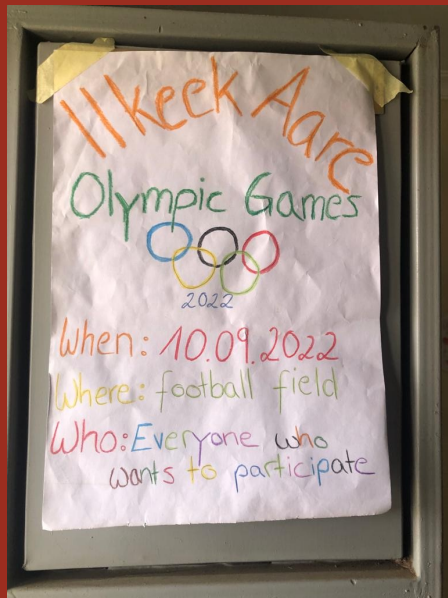 Ilkeek Aare
Olympic Games
2022
When: 10.09.2022
Where: football field
Who: Everyone who
wants to participate